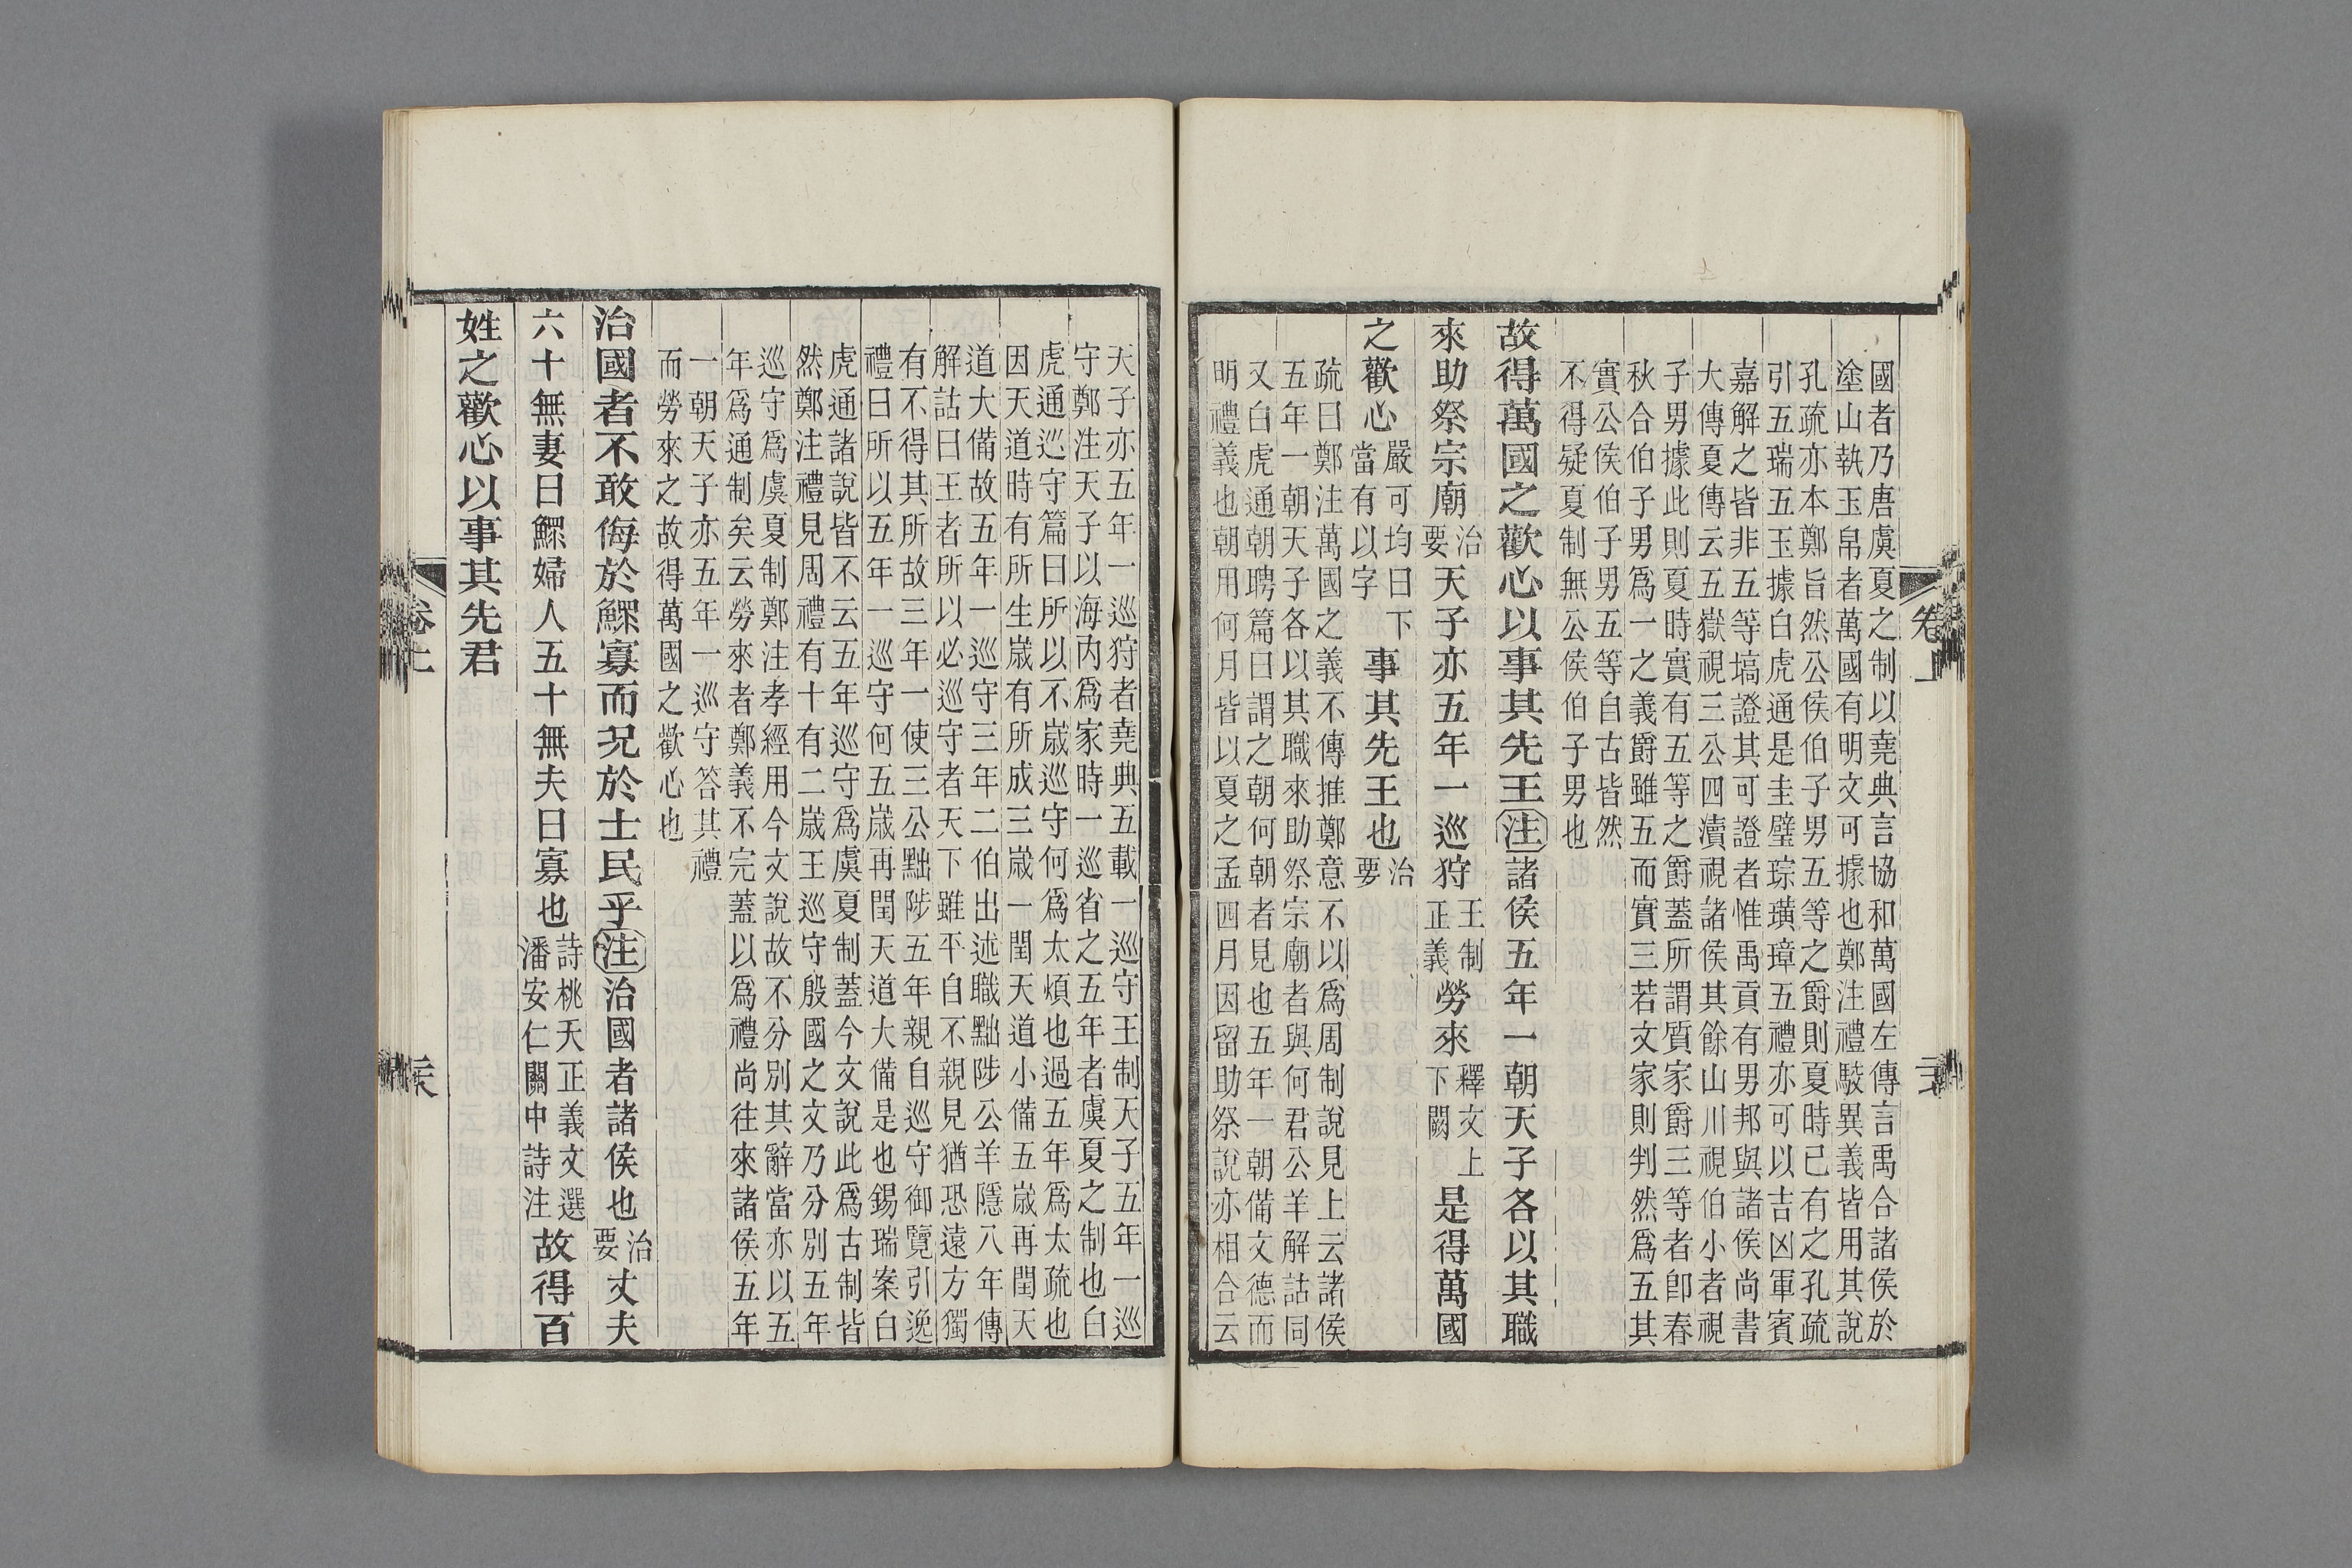 國者乃唐虞夏之制以堯典言協和萬國左傳言禹合諸侯於
塗山執玉帛者萬國有明文可據也鄭注禮駮異義皆用其說
孔疏亦本鄭旨然公侯伯子男五等之爵則夏時已有之孔疏
引五瑞五玉據白虎通是圭璧琮璜璋五禮亦可以吉凶軍賓
嘉解之皆非五等塙證其可證者惟禹貢有男邦與諸侯尚書
大傳夏傳云五嶽視三公四瀆視諸侯其餘山川視伯小者視
子男據此則夏時實有五等之爵蓋所謂質家爵三等者卽春
秋合伯子男爲一之義爵雖五而實三若文家則判然爲五其
實公侯伯子男五等自古皆然
不得疑夏制無公侯伯子男也
故得萬國之歡心以事其先王注諸侯五年一朝天子各以其職
來助祭宗廟治要天子亦五年一巡狩王制正義勞來釋文上下闕是得萬國
之歡心嚴可均曰下當有以字事其先王也治要
疏曰鄭注萬國之義不傳推鄭意不以爲周制說見上云諸侯
五年一朝天子各以其職來助祭宗廟者與何君公羊解詁同
又白虎通朝聘篇曰謂之朝何朝者見也五年一朝備文德而
明禮義也朝用何月皆以夏之孟四月因留助祭說亦相合云
天子亦五年一巡狩者堯典五載一巡守王制天子五年一巡
守鄭注天子以海內爲家時一巡省之五年者虞夏之制也白
虎通巡守篇曰所以不歲巡守何爲太煩也過五年爲太疏也
因天道時有所生歲有所成三歲一閏天道小備五歲再閏天
道大備故五年一巡守三年二伯出述職黜陟公羊隱八年傳
解詁曰王者所以必巡守者天下雖平自不親見猶恐遠方獨
有不得其所故三年一使三公黜陟五年親自巡守御覽引逸
禮曰所以五年一巡守何五歲再閏天道大備是也錫瑞案白
虎通諸說皆不云五年巡守爲虞夏制蓋今文說此爲古制皆
然鄭注禮見周禮有十有二歲王巡守殷國之文乃分別五年
巡守爲虞夏制鄭注孝經用今文說故不分別其辭當亦以五
年爲通制矣云勞來者鄭義不完蓋以爲禮尚往來諸侯五年
一朝天子亦五年一巡守答其禮
而勞來之故得萬國之歡心也
治國者不敢侮於鰥寡而況於士民乎注治國者諸侯也治要丈夫
六十無妻曰鰥婦人五十無夫曰寡也詩桃夭正義文選潘安仁關中詩注故得百
姓之歡心以事其先君